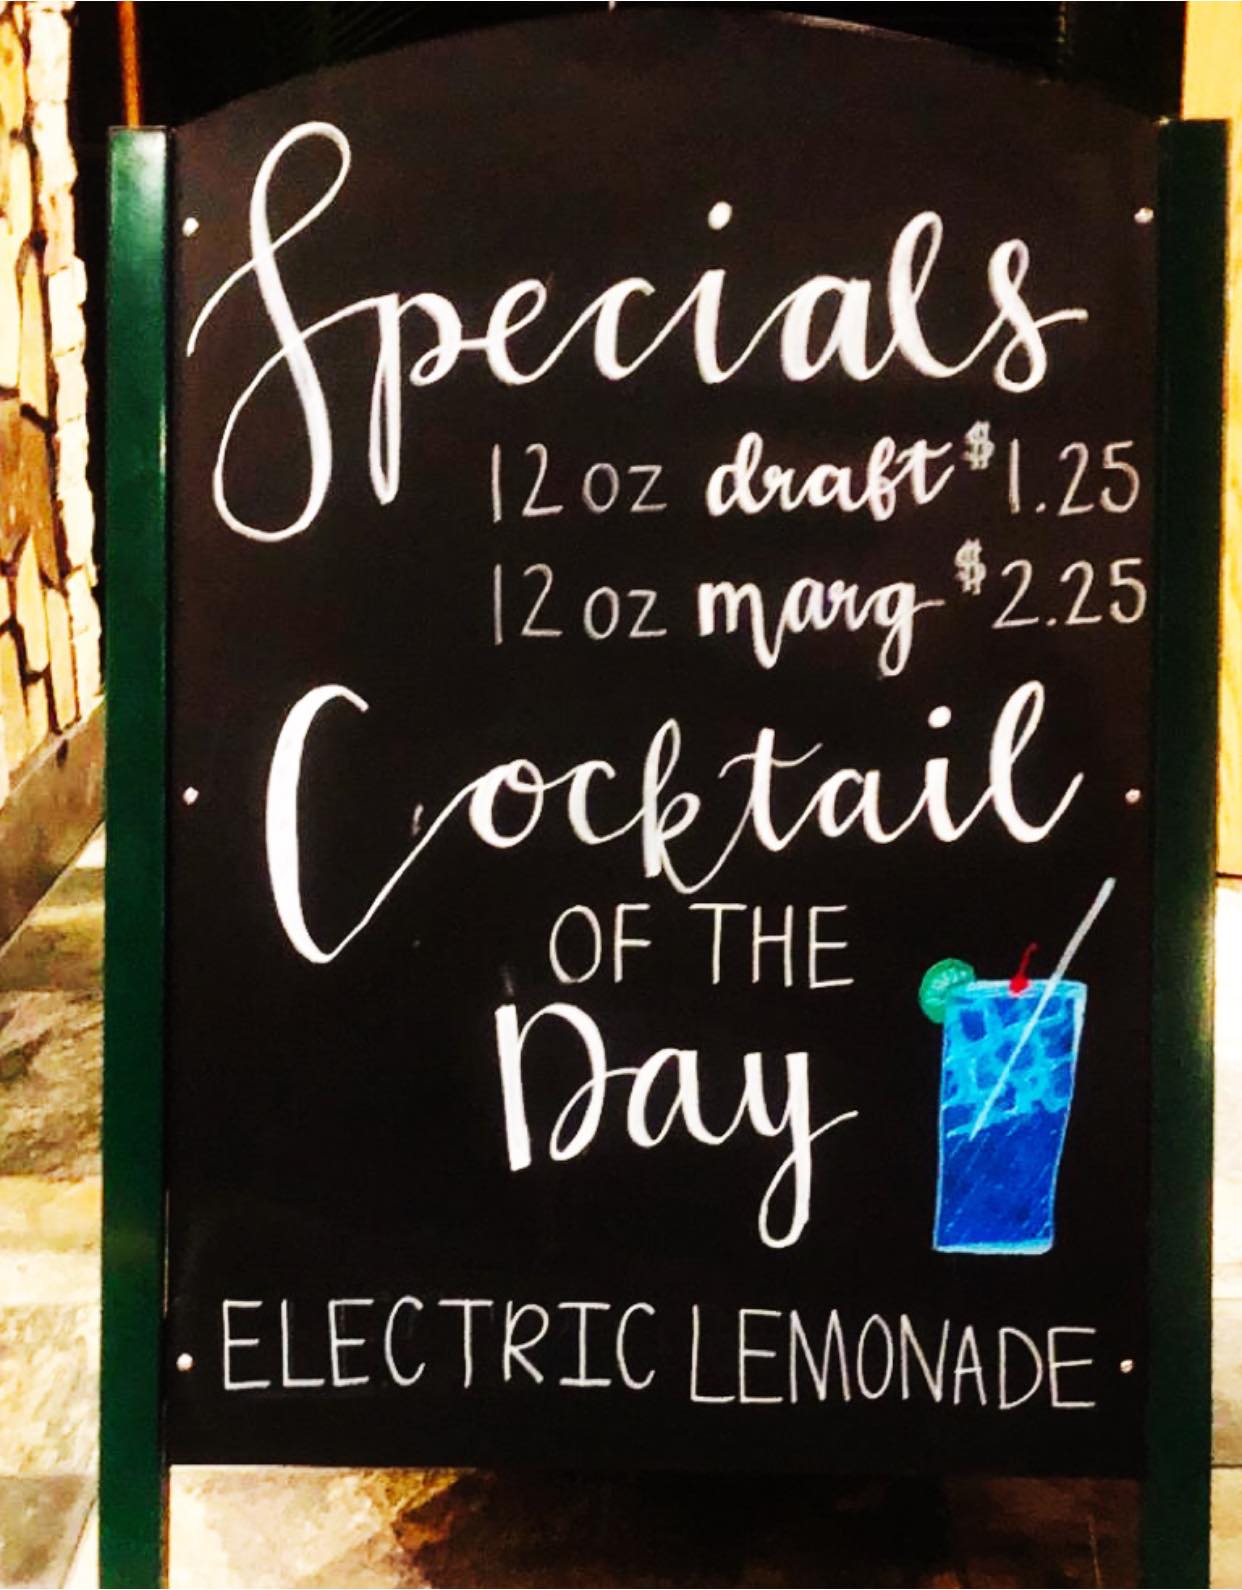 Specials
12 oz draft $1.25
12 oz marg $2.25
Cocktail
OF THE
Day
ELECTRIC LEMONADE